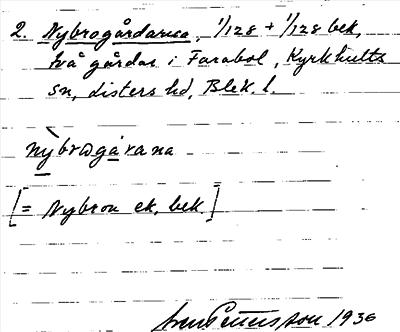 2. Nybrogårdarna, 1/128 + 1/128 bek,
två gårdar i Farabol, Kyrkhults
sn, Listers hd, Blek. l.
nỳbrωgárana
[= Nybron ek. bek.]
1936